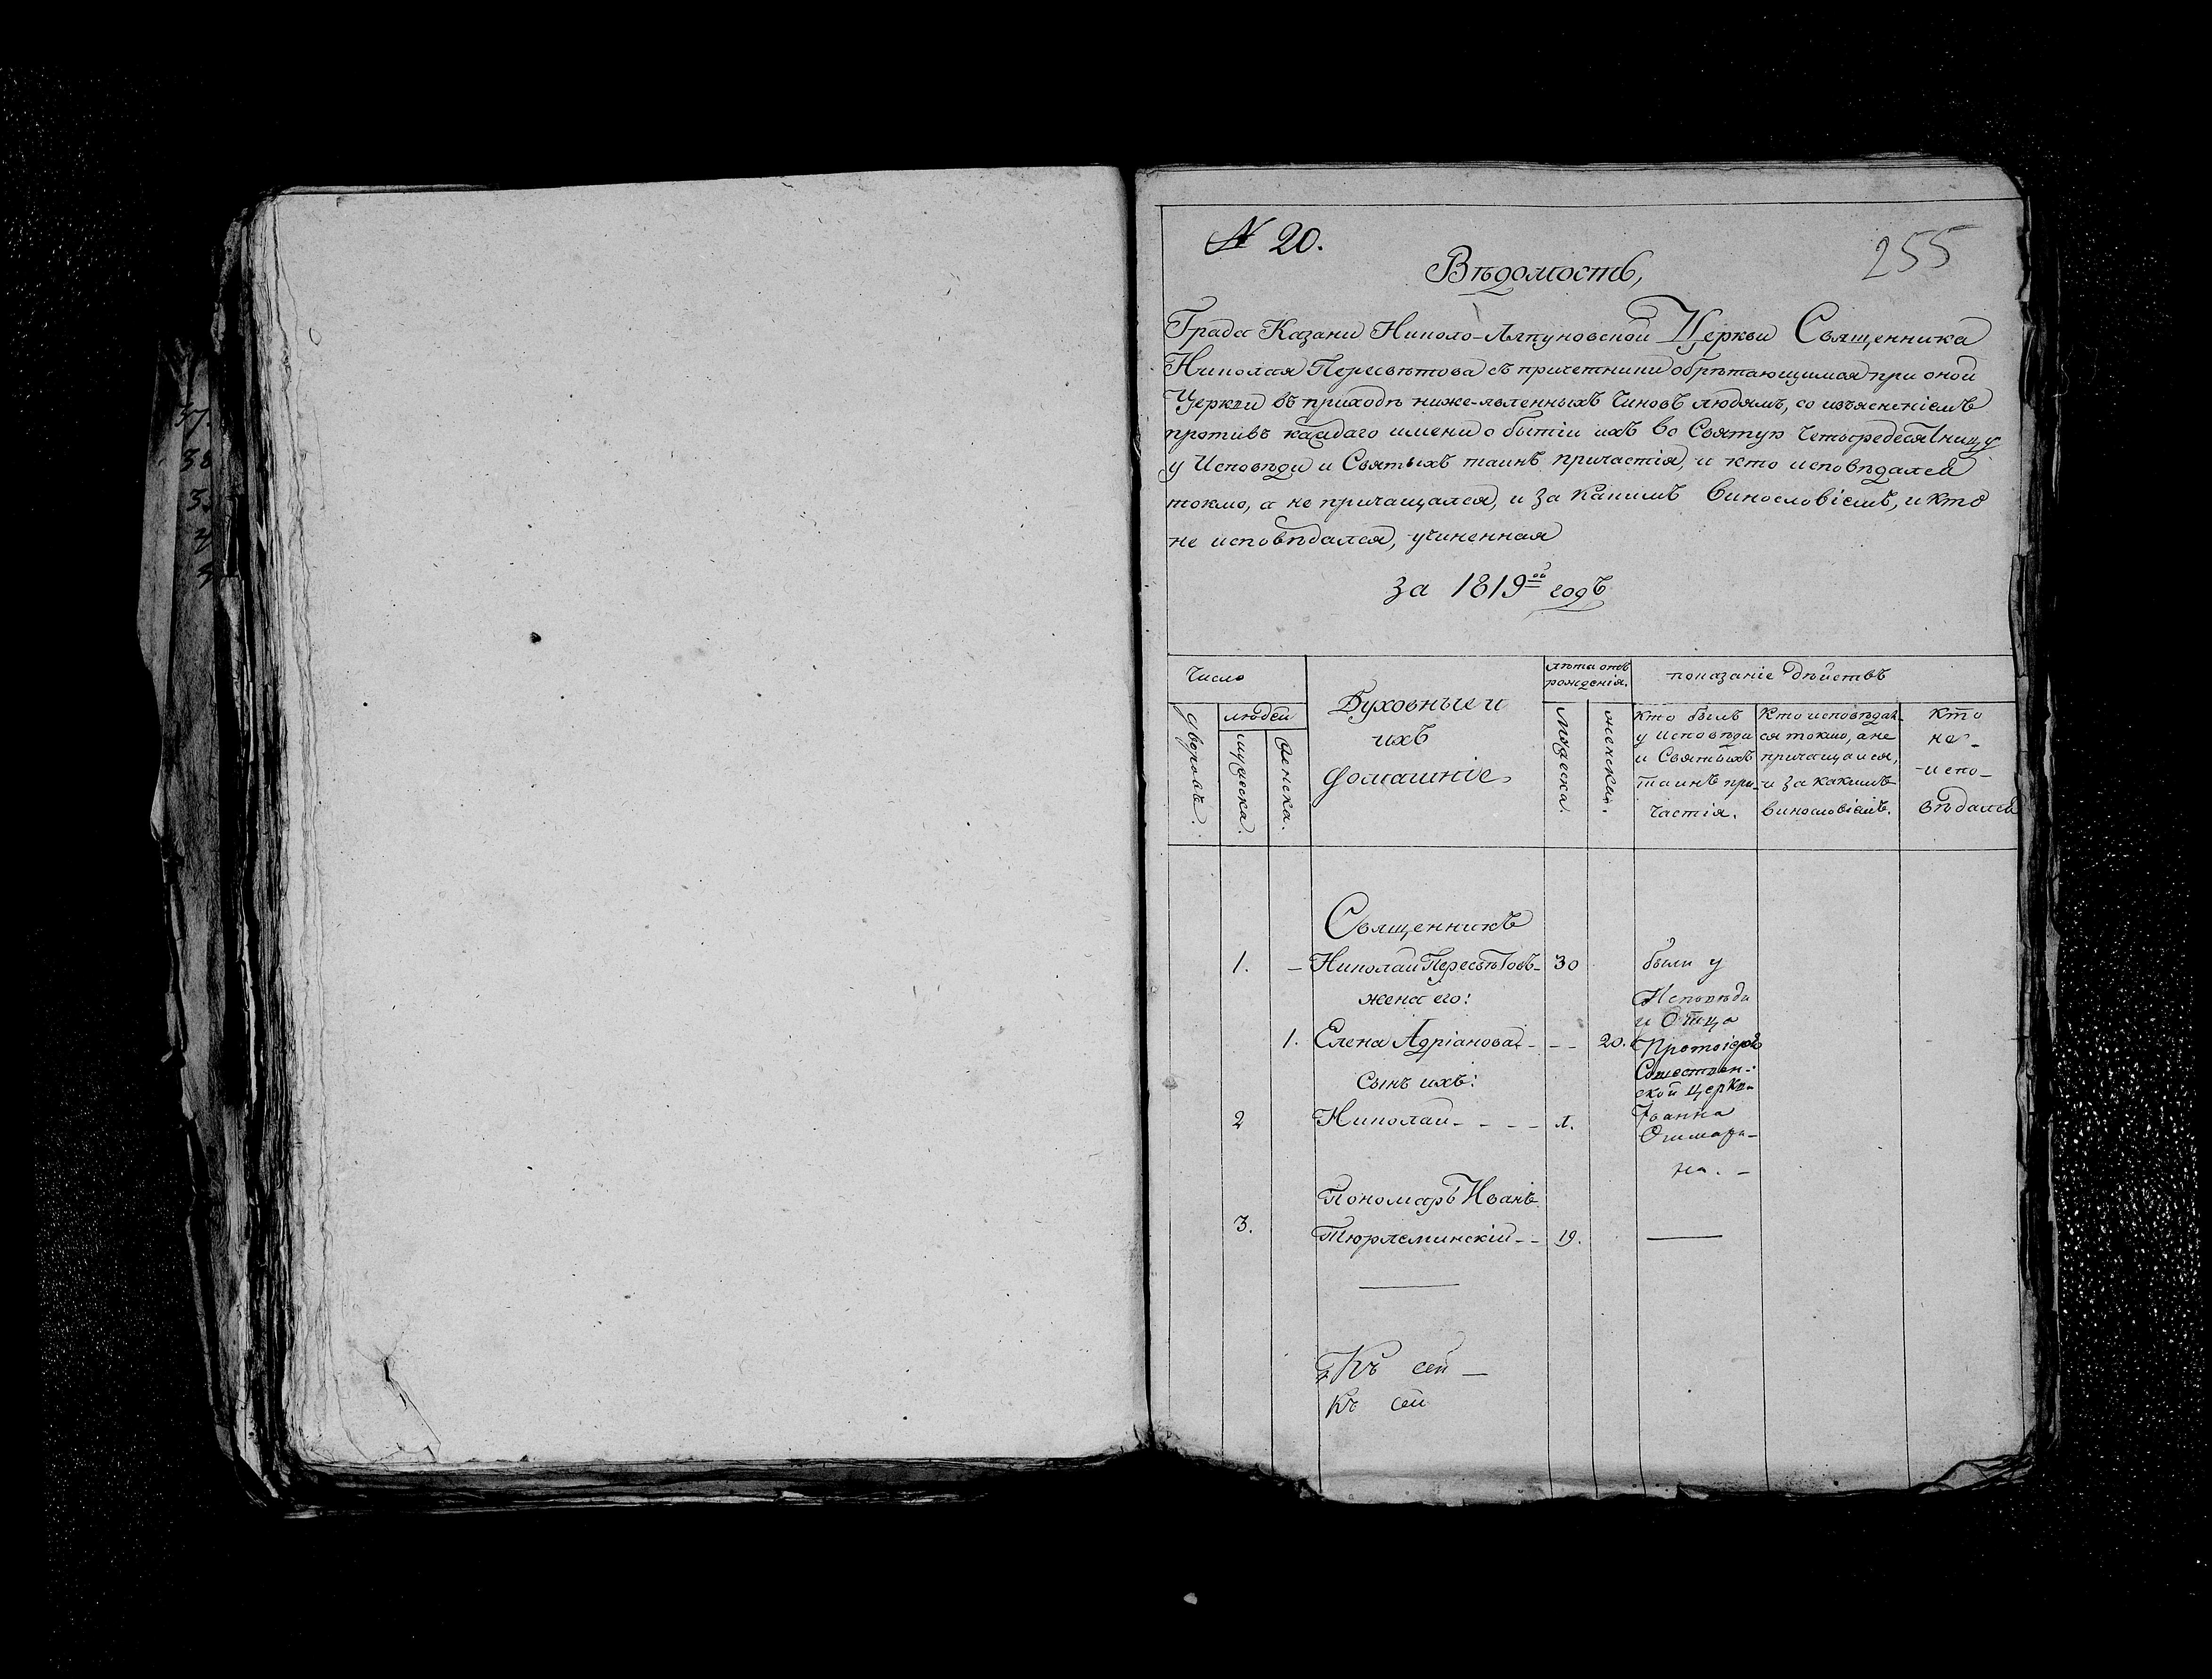 37.
38
3
№ 20.
255
Вѣдомость,
Града Казани Николо-Ляпуновской Церкви Священника
Николая Пересвѣтова съ причетники обрѣтающимся при оной
Церкви въ приходѣ ниже-явленныхъ чиновъ людямъ, со изъясненіемъ
противъ каждаго имени о бытіи ихъ во Святую Четыредесятницу
у Исповѣди и Святыхъ таинъ причастія, и кто исповѣдался
токмо, а не причащался, и за какимъ винословіемъ, и кто
не исповѣдался, учиненная
за 1819ой годъ
Число
дворовъ.
людей
мужеска.
женска.
Духовные и
ихъ
домашніе.
лѣта отъ
рожденія.
мужеска.
женски.
показаніе дѣйствъ
кто былъ
у исповѣди
и Святыхъ
таинъ при-
частія.
Кто исповѣдал-
ся токмо, а не
причащался,
и за какимъ
винословіемъ.
кто
не-
испо-
вѣдался
Священникъ
1. - Николай Пересвѣтовъ - 30 были у
жена его: Исповѣди
и Отца
1. Елена Адріанова - - - 20. Протоіерѣ
Сынъ ихъ: Сошествен-
ской церкви
2 Николай - - - - 1. Іоанна
Ошмари-
на. -
Пономарь Иванъ
3. Тюрлеминскій - - 19. —
Къ сей —
Къ сей